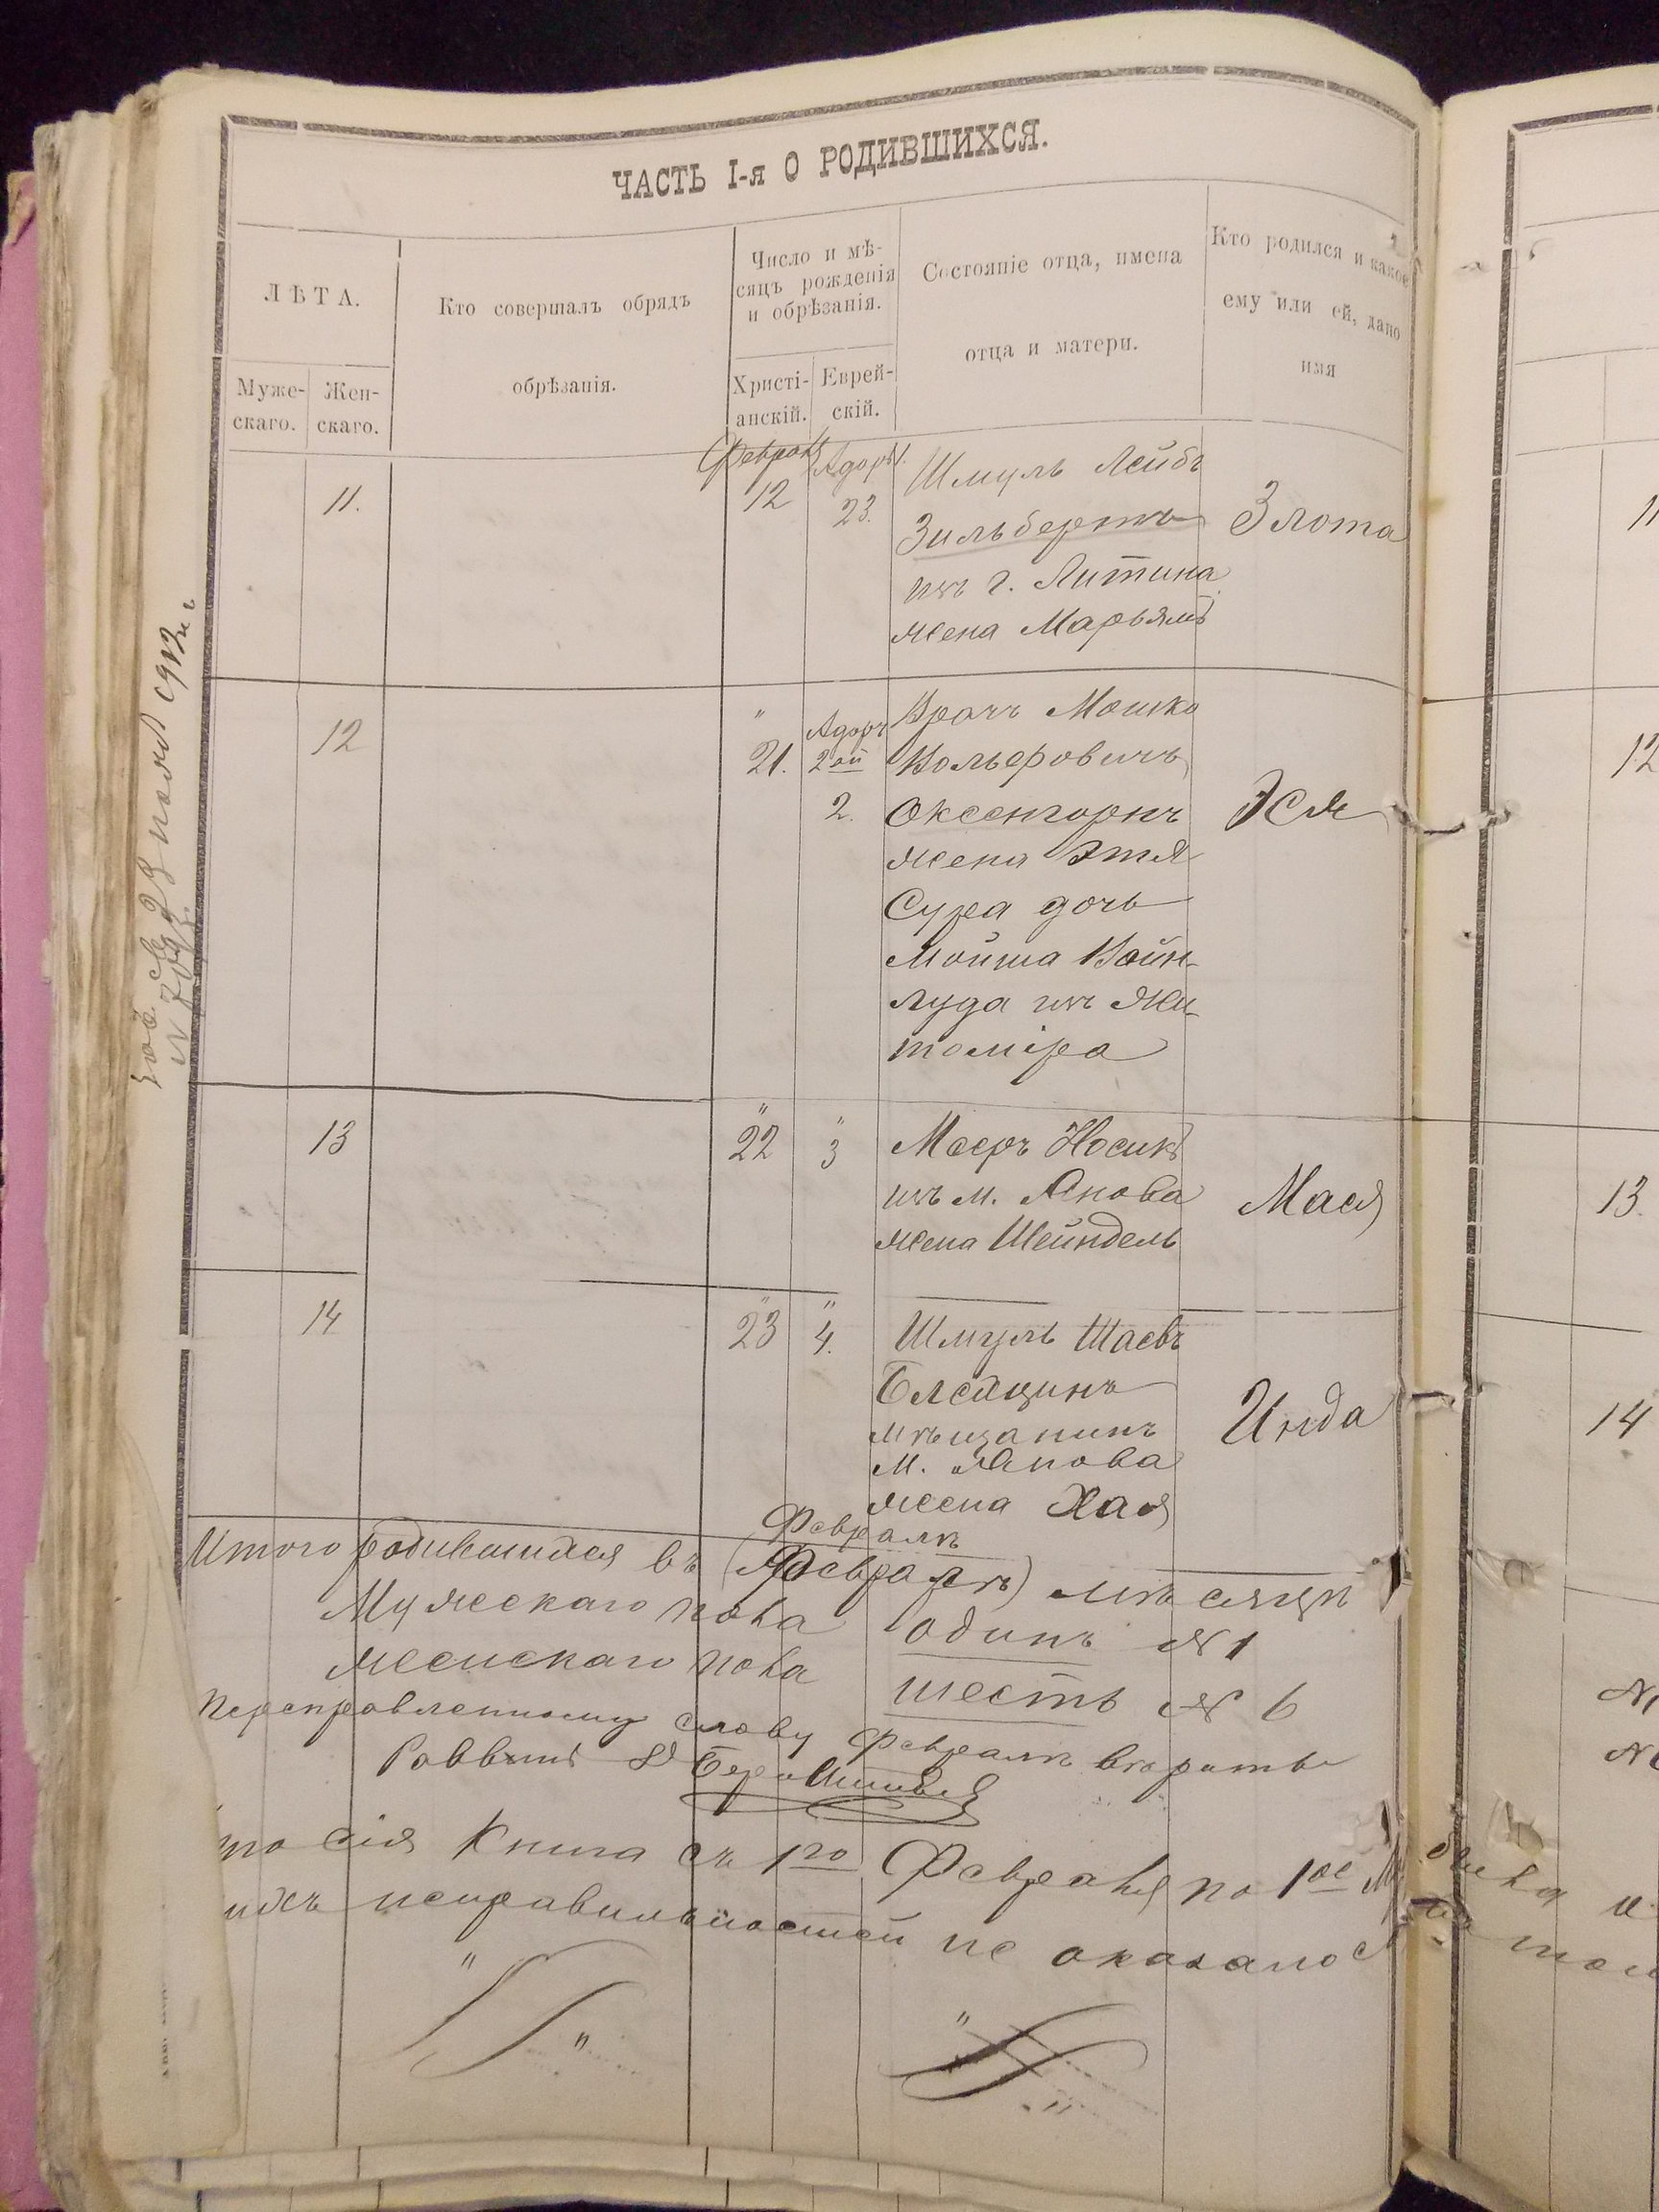 ЧАСТЬ I-я О РОДИВШИХСЯ.
ЛѢТА.
Муже-
скаго.
Жен-
скаго.
Кто совершалъ обрядъ
обрѣзанія.
Число и мѣ-
сяцъ рожденія
и обрѣзанія.
Христі-
анскій.
Еврей-
скій.
Состояніе отца, имена
отца и матери.
Кто родился и какое
ему или ей, дано
имя
11.
Февраля
12
Адоръ
23.
Шмуль Лейбъ
Зильбертъ
изъ г. Литина
жена Марьямъ
Злота
12
"
21.
Адоръ
2ой
2.
Врачъ Мошко
Вольфовичъ
Оксенгорнъ
жена Этя
Сура дочь
Мойша Вайн-
луда изъ Жи-
томіра
Эся
13
"
22
"
3
Маеръ Носикъ
изъ м. Янова
жена Шейндель
Мася
14
"
23
"
4.
Шмуль Шаевъ
мѣщанинъ
м. Янова
жена Хая
Инда
Февралѣ
Итого родившихся въ (Февралѣ) мѣсяцѣ
Мужескаго пола одинъ № 1
женскаго пола шесть № 6
Переправленному слову Февралѣ вѣрить
Раввинъ
сія Книга съ 1го Февраля по 1ое
неправильностей не оказалос
11
12
13.
14